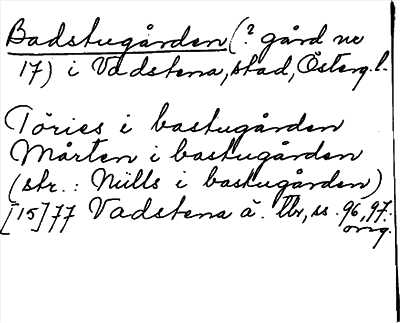 Badstugården (? gård nr
17) i Vadstena, stad, Österg. l.
Töries i bastugården
Mårten i bastugården
(str.: Nills i bastugården)
[15]77 Vadstena ä. tbr, ss. 96, 97.
orig.